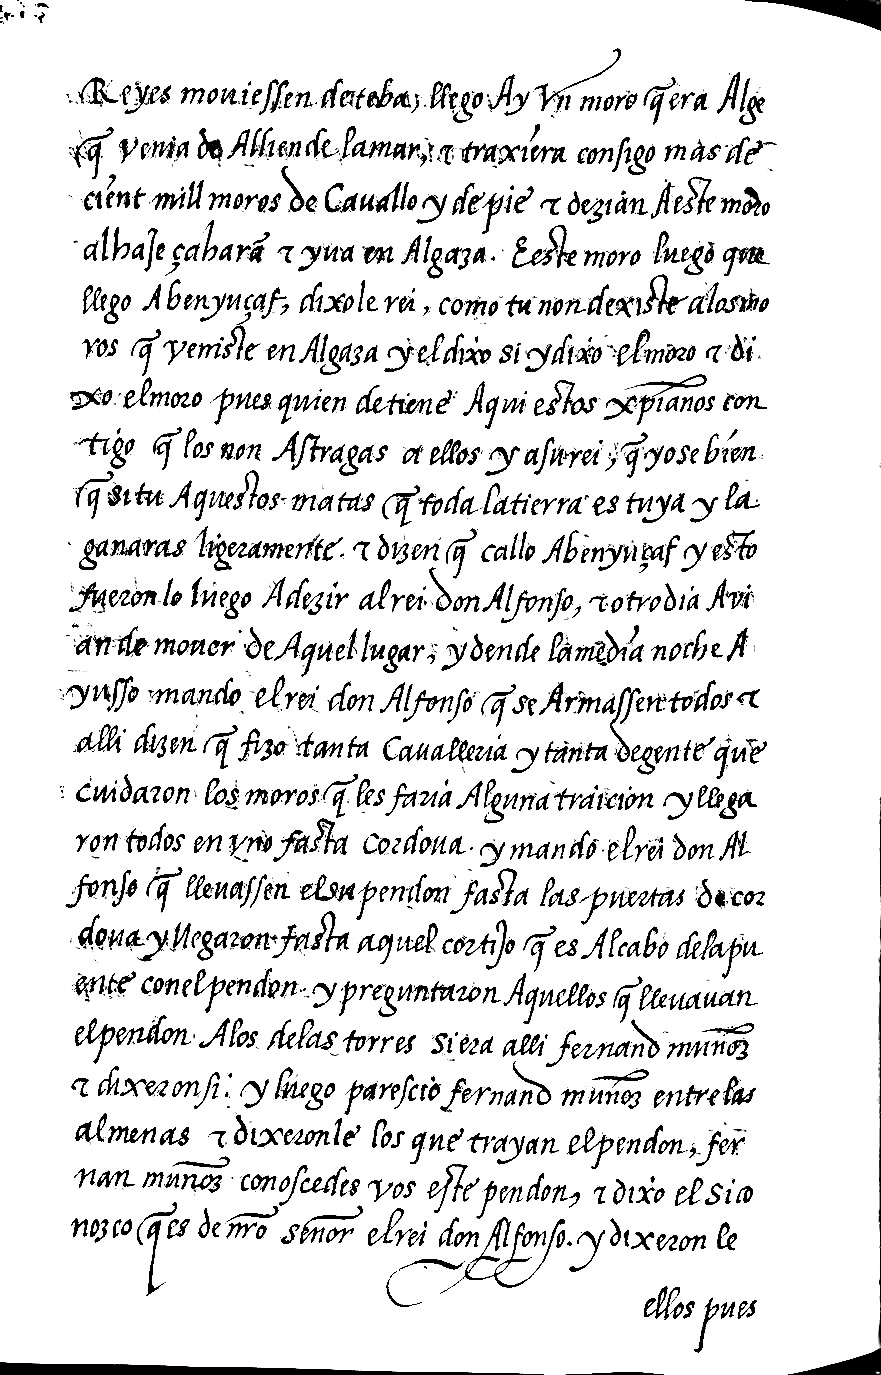 Reyes mouiessen de teba, llego Ay Vn moro q̃ era Alge
q̃ venia de Alliende la mar, τ traxiera consigo mas de
cient mill moros de Cauallo y de pie τ dezian A este moro
alhaje çaharã τ yua en Algaza. E este moro luego que
llego Abenyuçaf, dixole rei, como tu non dexiste a los mo
ros q̃ veniste en Algaza y el dixo si y dixo el moro τ di
xo el moro pues quien detiene Aqui estos xp̃ianos con
tigo q̃ los non Astragas a ellos y a su rei, q̃ yo se bien
q̃ si tu Aquestos matas q̃ toda la tierra es tuya y la
ganaras ligeramente. τ dizen q̃ callo Abenyuçaf y esto
fueron lo luego A dezir al rei don Alfonso, τ otro dia Avi
an de mouer de Aquel lugar, y dende la media noche A
yusso mando el rei don Alfonso q̃ se Armassen todos τ
alli dizen q̃ fizo tanta Caualleria y tanta de gente que
cuidaron los moros q̃ les faria Alguna traicion y llega
ron todos en vno fasta Cordoua. y mando el rei don Al
fonso q̃ lleuassen el su pendon fasta las puertas de cor
doua y llegaron fasta aquel cortijo q̃ es Al cabo de la pu
ente con el pendon. y preguntaron Aquellos q̃ lleuauan
el pendon A los de las torres si era alli fernand muñoz
τ dixeron si. y luego parescio fernand muñoz entre las
almenas τ dixeronle los que trayan el pendon, fer
nan muñoz conoscedes vos este pendon, τ dixo el Si co
nozco q̃ es de nr̃o señor el rei don Alfonso. y dixeron le
ellos pues